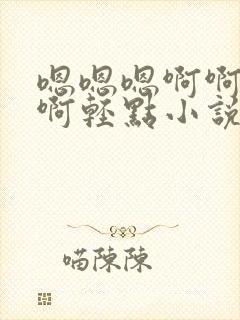 嗯嗯嗯啊啊
啊輕點小說
喵陳陳